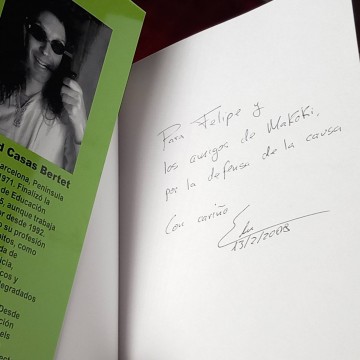 d Casas Bertet
arcelona, Península
1971. Finalizó la
de Educación
5, aunque trabaja
or desde 1992.
o su profesión
itos, como
da de
icía,
cos y
degradados
Desde
ción
els
Para Felipe y
los amigos de Makoki,
por la defensa de la causa
Con cariño
13/2/2008